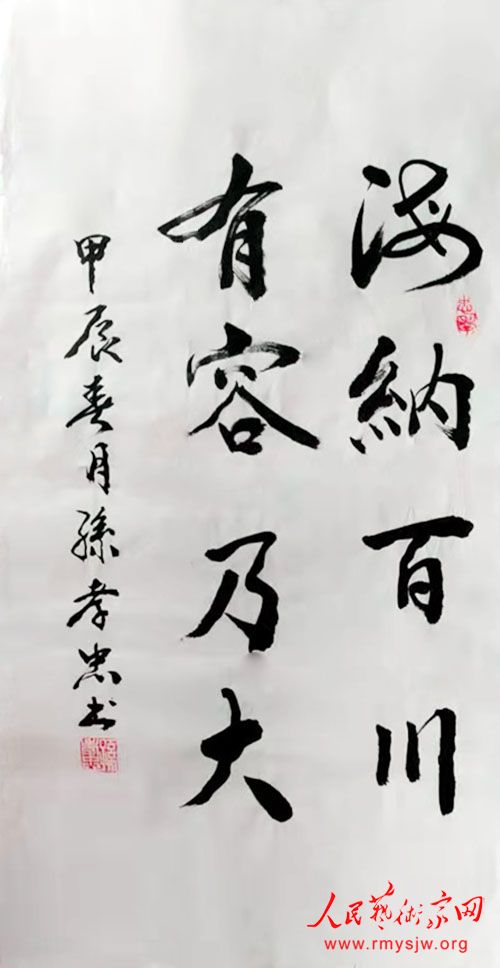 海納百川
有容乃大
甲辰春月孫孝忠书
人民藝術家网
www.rmysjw.org